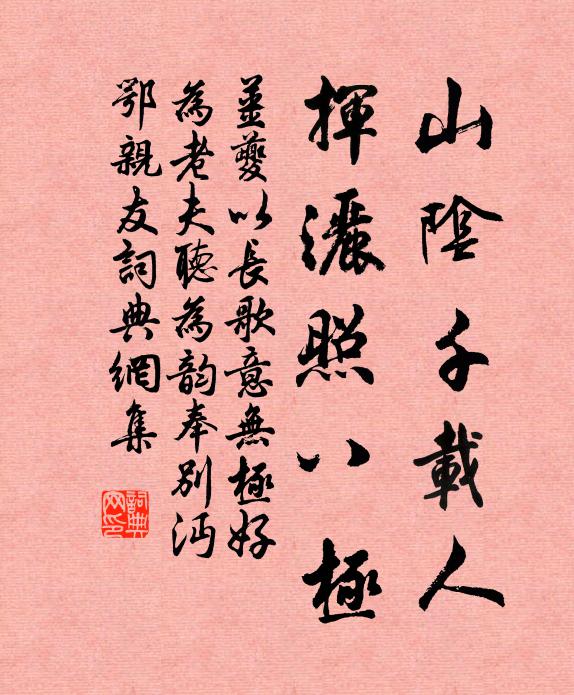 山陰千載人
揮灑照八極
姜夔以長歌意無極好
為老夫聽為韵奉別沔
鄂親友詞典網集
詞典网印